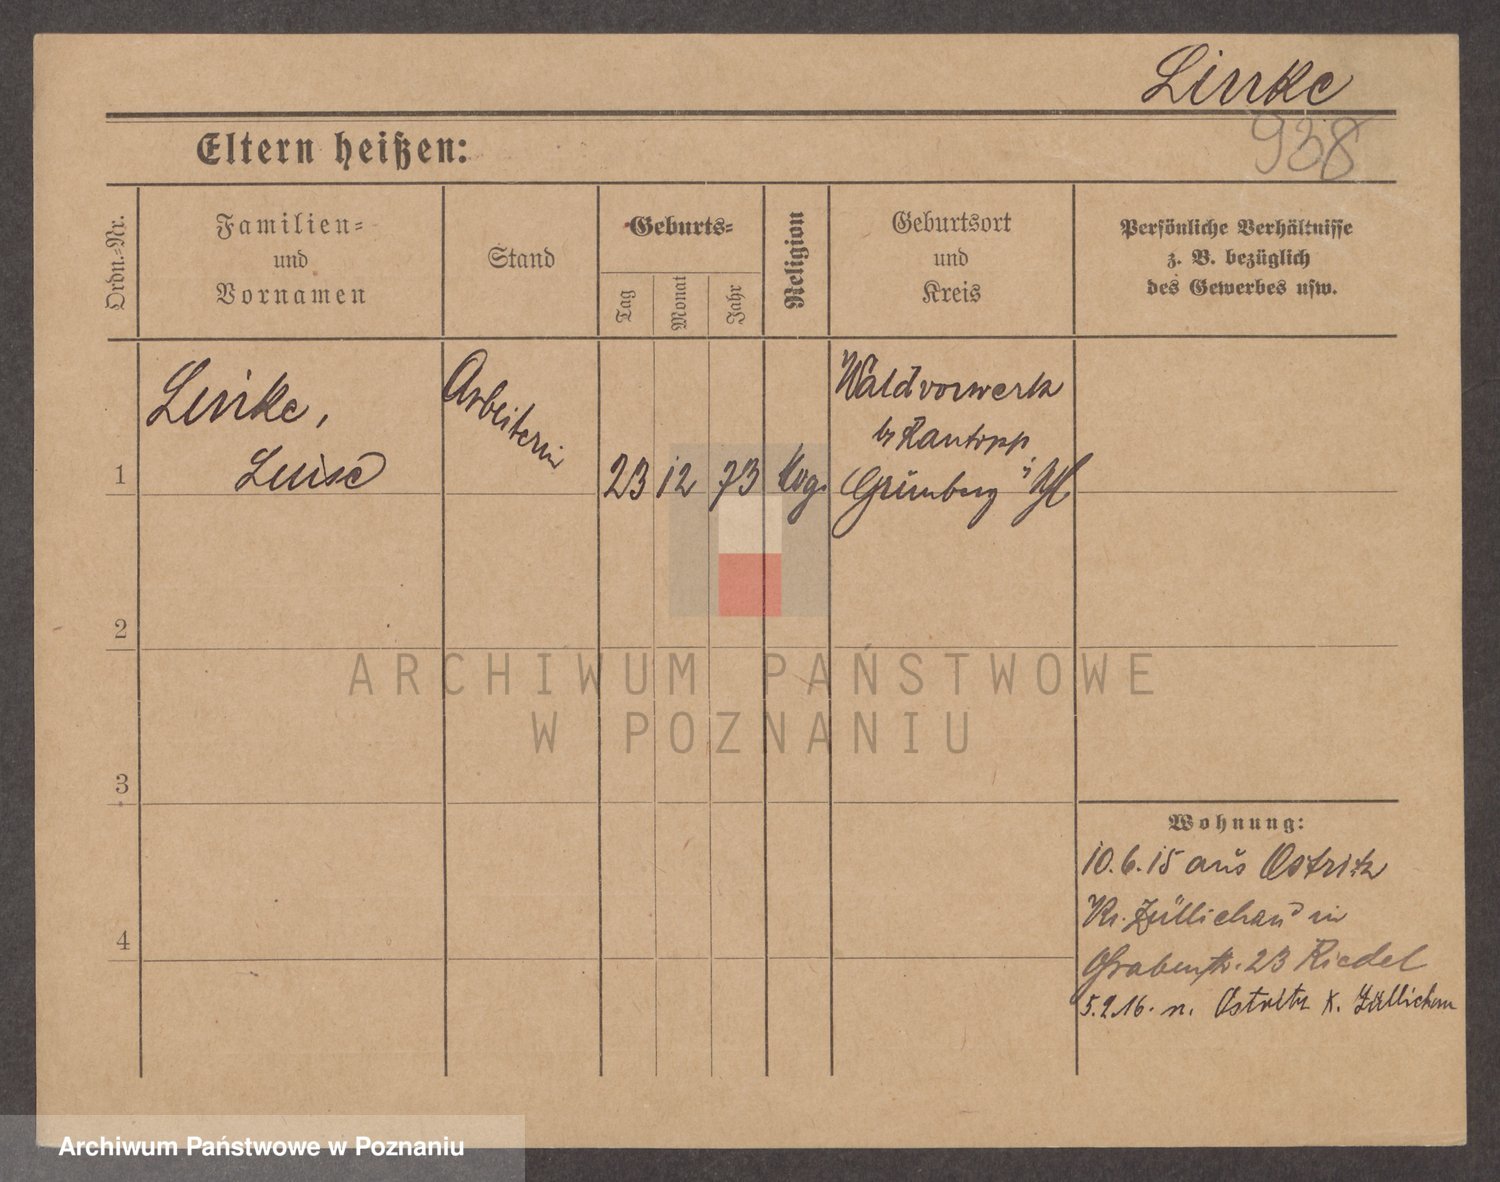 Linke
938
Eltern heißen:
Ordn.-Nr.
Familien-
und
Vornamen
Stand
Geburts-
Tag
Monat
Jahr
Religion
Geburtsort
und
Kreis
Persönliche Verhältnisse
z. B. bezüglich
des Gewerbes usw.
1
Linke,
Luise
Arbeiterin
23 12 73
Waldvorwerk
b/
Grünberg i/
2
3
4
Wohnung:
10.6.15 aus Ostritz
Kr. Züllichau in
Grabenstr. 23 Riedel
5.2.16. n. Ostritz K. Züllichau
ARCHIWUM PAŃSTWOWE
W POZNANIU
Archiwum Państwowe w Poznaniu